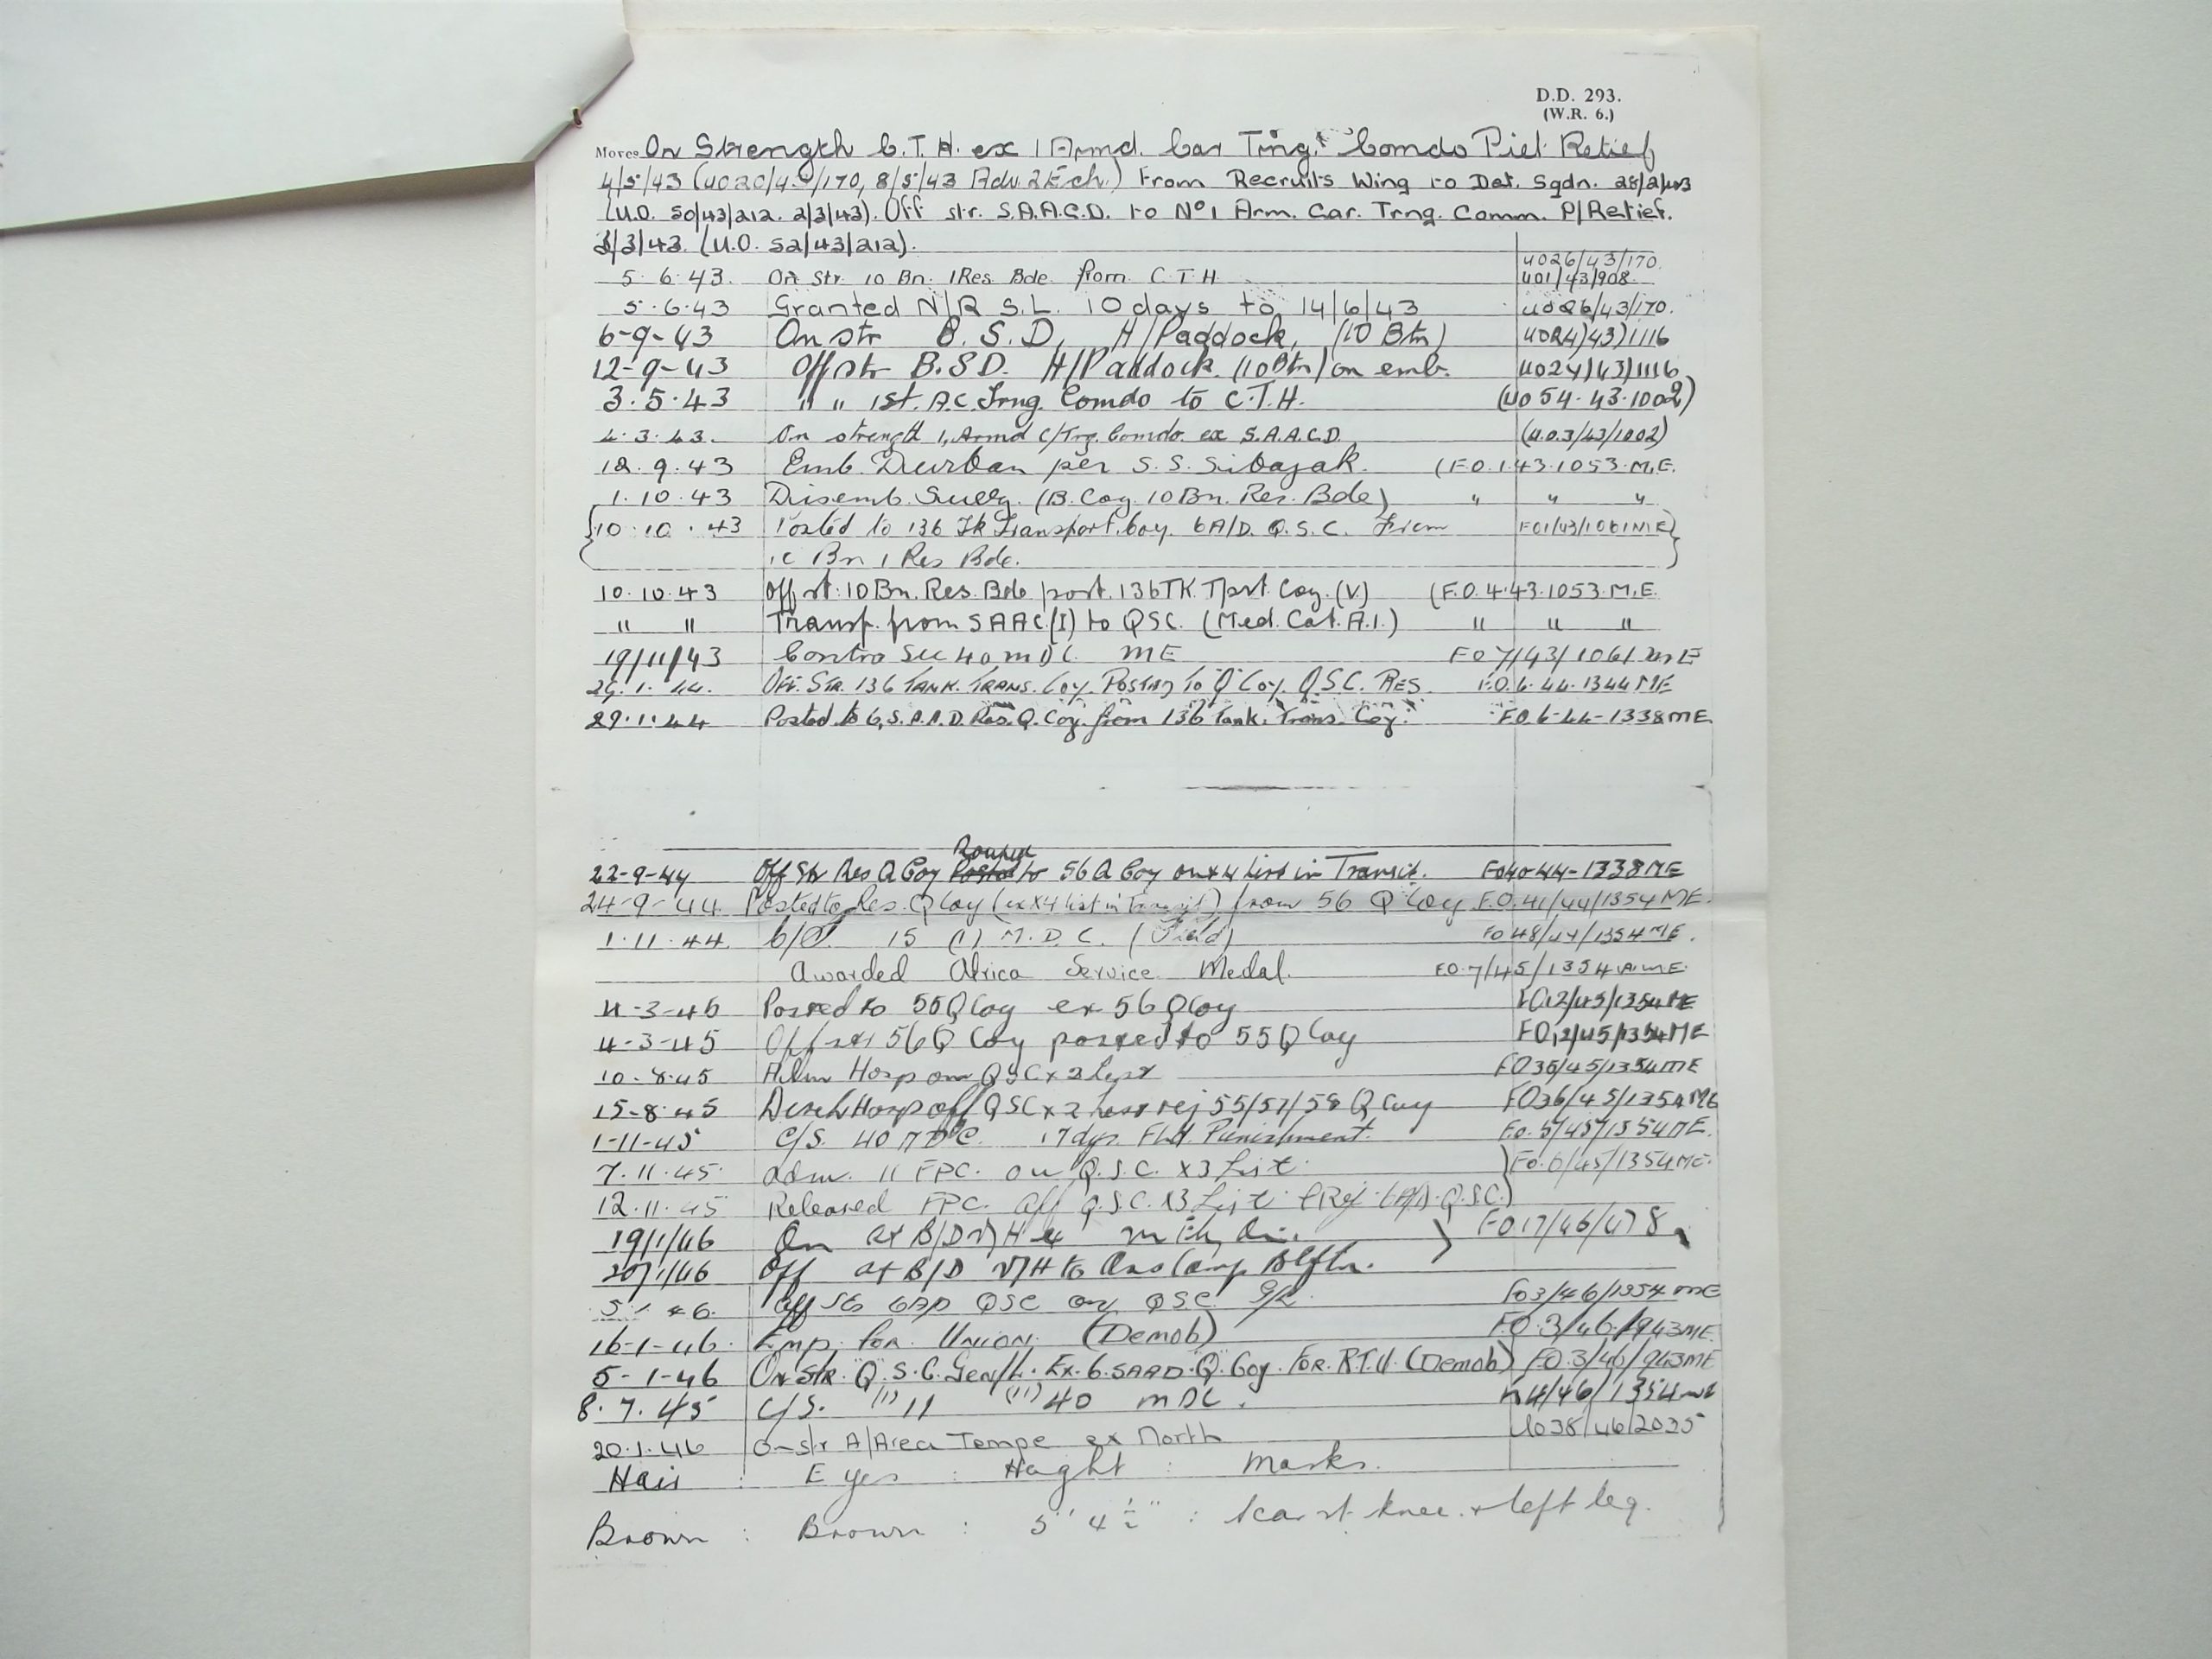 D.D. 293.
(W.R. 6.)
Moves On Strength C.T.H. ex 1 Armd. Car Tng. Comdo Piet Retief
4/5/43 (UO20/43/170, 8/5/43 Adv. 2 Ech.) From Recruits Wing to Det. Sqdn. 28/2/43
(U.O. 50/43/212. 2/3/43). Off str. S.A.A.C.D. to No 1 Arm. Car. Trng. Comm. P/Retief.
3/3/43. (U.O. 52/43/212).
UO26/43/170.
5.6.43. On Str. 10 Bn. 1 Res Bde from C.T.H UO1/43/908.
5.6.43 Granted N/R S.L. 10 days to 14/6/43 UO26/43/170.
6-9-43 On str B.S.D, H/Paddock, (10 Btn) UO24/43/1116
12-9-43 Off str B.S.D. H/Paddock. (10 Btn) on emb. UO24/43/1116
3.5.43 " " 1st. A.C. Trng. Comdo to C.T.H. (UO 54.43.1002)
4.3.43. On strength 1. Armd C/Trg. Comdo. ex S.A.A.C.D. (U.O.3/43/1002)
12.9.43 Emb. Durban per S.S. Sibajak. (F.O.1.43.1053.M.E.
1.10.43 Disemb. Suez. (B. Coy. 10 Bn. Res. Bde) " " "
10.10.43 Posted to 136 Tk Transport. Coy. 6A/D. Q.S.C. From FO1/43/1061ME
10 Bn 1 Res Bde.
10.10.43 Off st: 10 Bn. Res. Bde post. 136 TK. Tprt. Coy. (V.) (F.O.4.43.1053.M.E.
" " Transf. from SAAC.(I) to QSC. (Med. Cat. A.1.) " " "
19/11/43 Contra Sec 40 MDC ME FO 7/43/1061 ME
29.1.44. Off. Str. 136 Tank. Trans. Coy. Posted to Q Coy. Q.S.C. Res. F.O.6.44.1344 ME
29.1.44 Posted to 6, S.A.A.D. Res. Q. Coy. from 136 Tank. Trans. Coy. F.O.6-44-1338 ME.
22-9-44 Off Str Res Q Coy to 56 Q Coy on x4 list in Transit. FO40-44-1338 ME
24-9-44 Posted to Res. Q Coy (ex X4 list in Transit) from 56 Q Coy F.O.41/44/1354 ME.
1.11.44. C/S. 15 (1) M.D.C. (Field) FO 48/44/1354 ME.
Awarded Africa Service Medal. FO.7/45/1354 ME.
4-3-45 Posted to 55 Q Coy ex 56 Q Coy FO12/45/1354 ME
4-3-45 Off str 56 Q Coy posted to 55 Q Coy FO12/45/1354 ME
10-8-45 Adm Hosp on QSC x 2 List FO36/45/1354 ME
15-8-45 Disch Hosp off QSC x 2 List rej 55/57/58 Q Coy FO36/45/1354 ME
1-11-45 C/S. 40 MDC. 17 dys Fld. Punishment. F.O.5/45/1354 ME.
7.11.45. Adm. 11 FPC. on Q.S.C. X3 List. FO.6/45/1354 ME.
12.11.45 Released FPC. off Q.S.C. X3 List. (Rej. 6A/D. Q.S.C.)
19/1/46 On at B/D VTH ex FO.17/46/478
20/1/46 Off at B/D VTH to Camp Blftn.
5.1.46. Off Str 6AD QSC on QSC G/L FO3/46/1354 ME
16-1-46. Emp. for Union. (Demob) FO.3/46/943 ME.
5-1-46 On Str. Q.S.C. Gen/L. Ex. 6. SAAD. Q. Coy. For. R.T.U. (Demob) FO.3/46/943 ME
8.7.45 C/S. (1) 11 (11) 40 MDC. 4/46/1354 ME
20.1.46 On str A/Area Tempe ex North UO38/46/2035
Hair : Eyes : Height : Marks.
Brown : Brown : 5' 4½" : Scar rt. knee. + left leg.